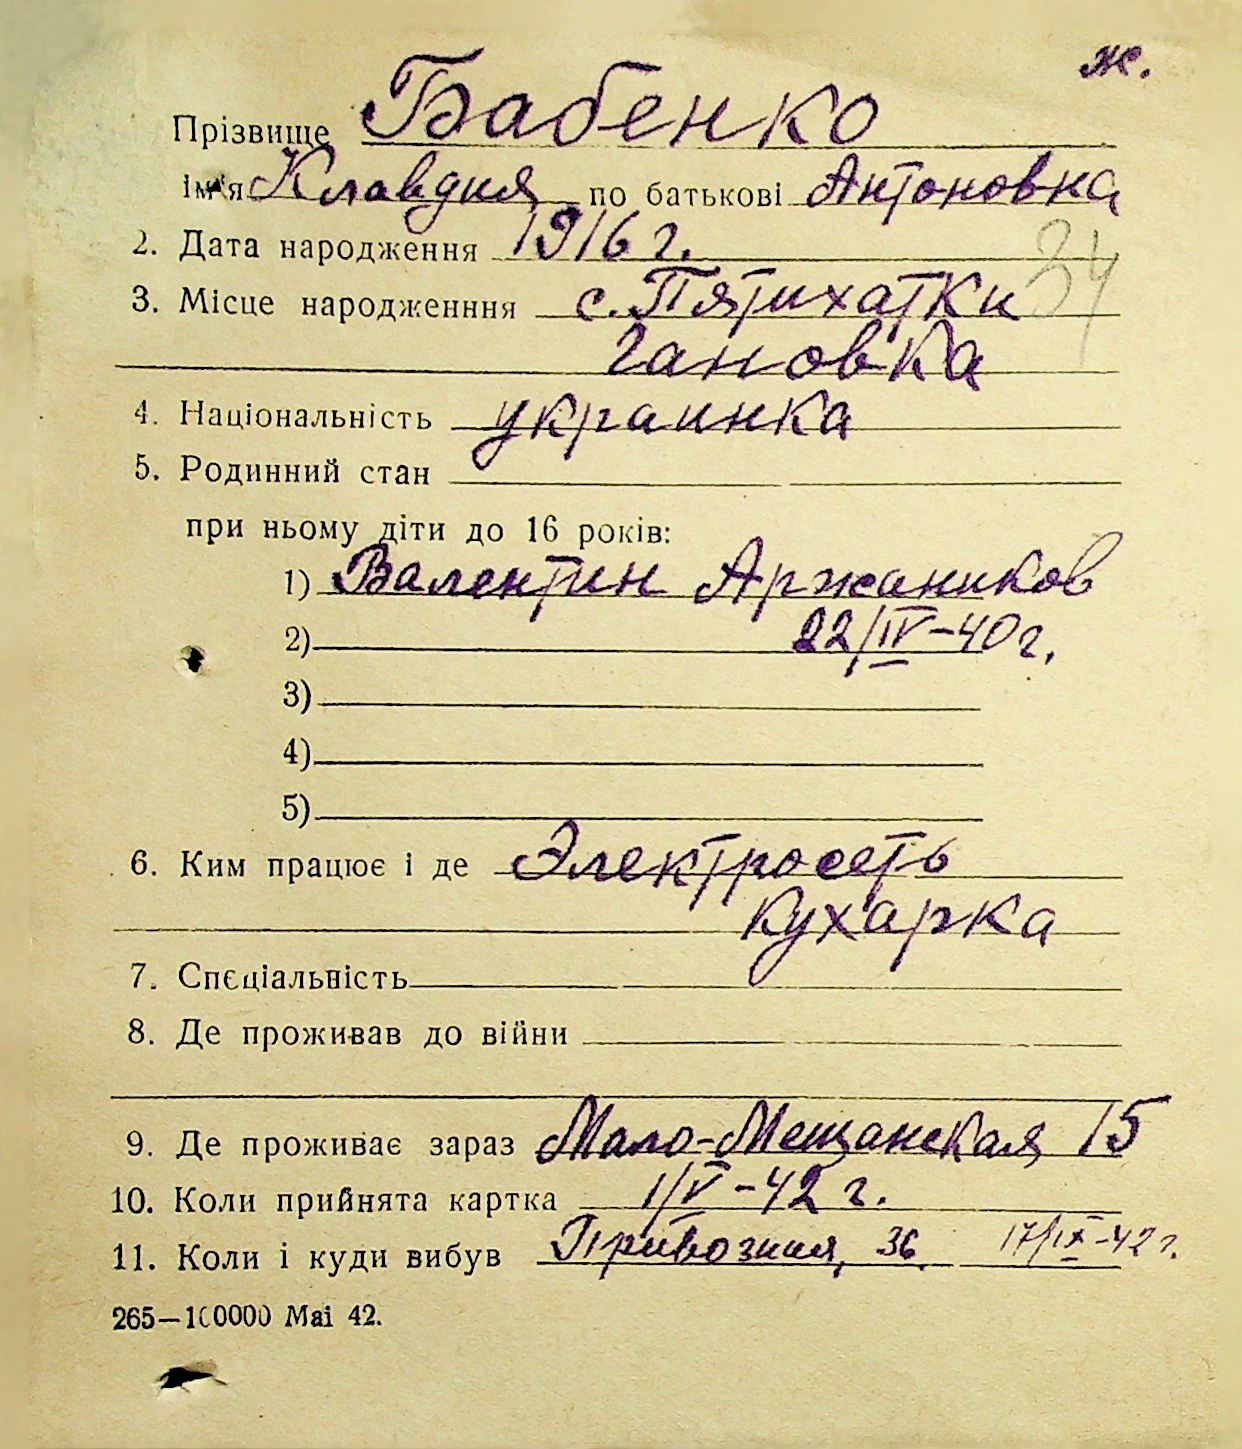 ж.
Прізвище Бабенко
Ім'я Клавдия по батькові Антоновна
2. Дата народження 1916 г.
34
3. Місце народженння с. Пятихатки
Гановка
4. Національність украинка
5. Родинний стан
при ньому діти до 16 років:
1) Валентин Аржаников
2) 22/IV-40 г.
3)
4)
5)
6. Ким працює і де Электросеть
кухарка
7. Спєціальність
8. Де проживав до війни
9. Де проживає зараз Мало-Мещанская 15
10. Коли прийнята картка 1/V-42 г.
11. Коли і куди вибув Привозная, 36. 17/IX-42 г.
265—100000 Mai 42.